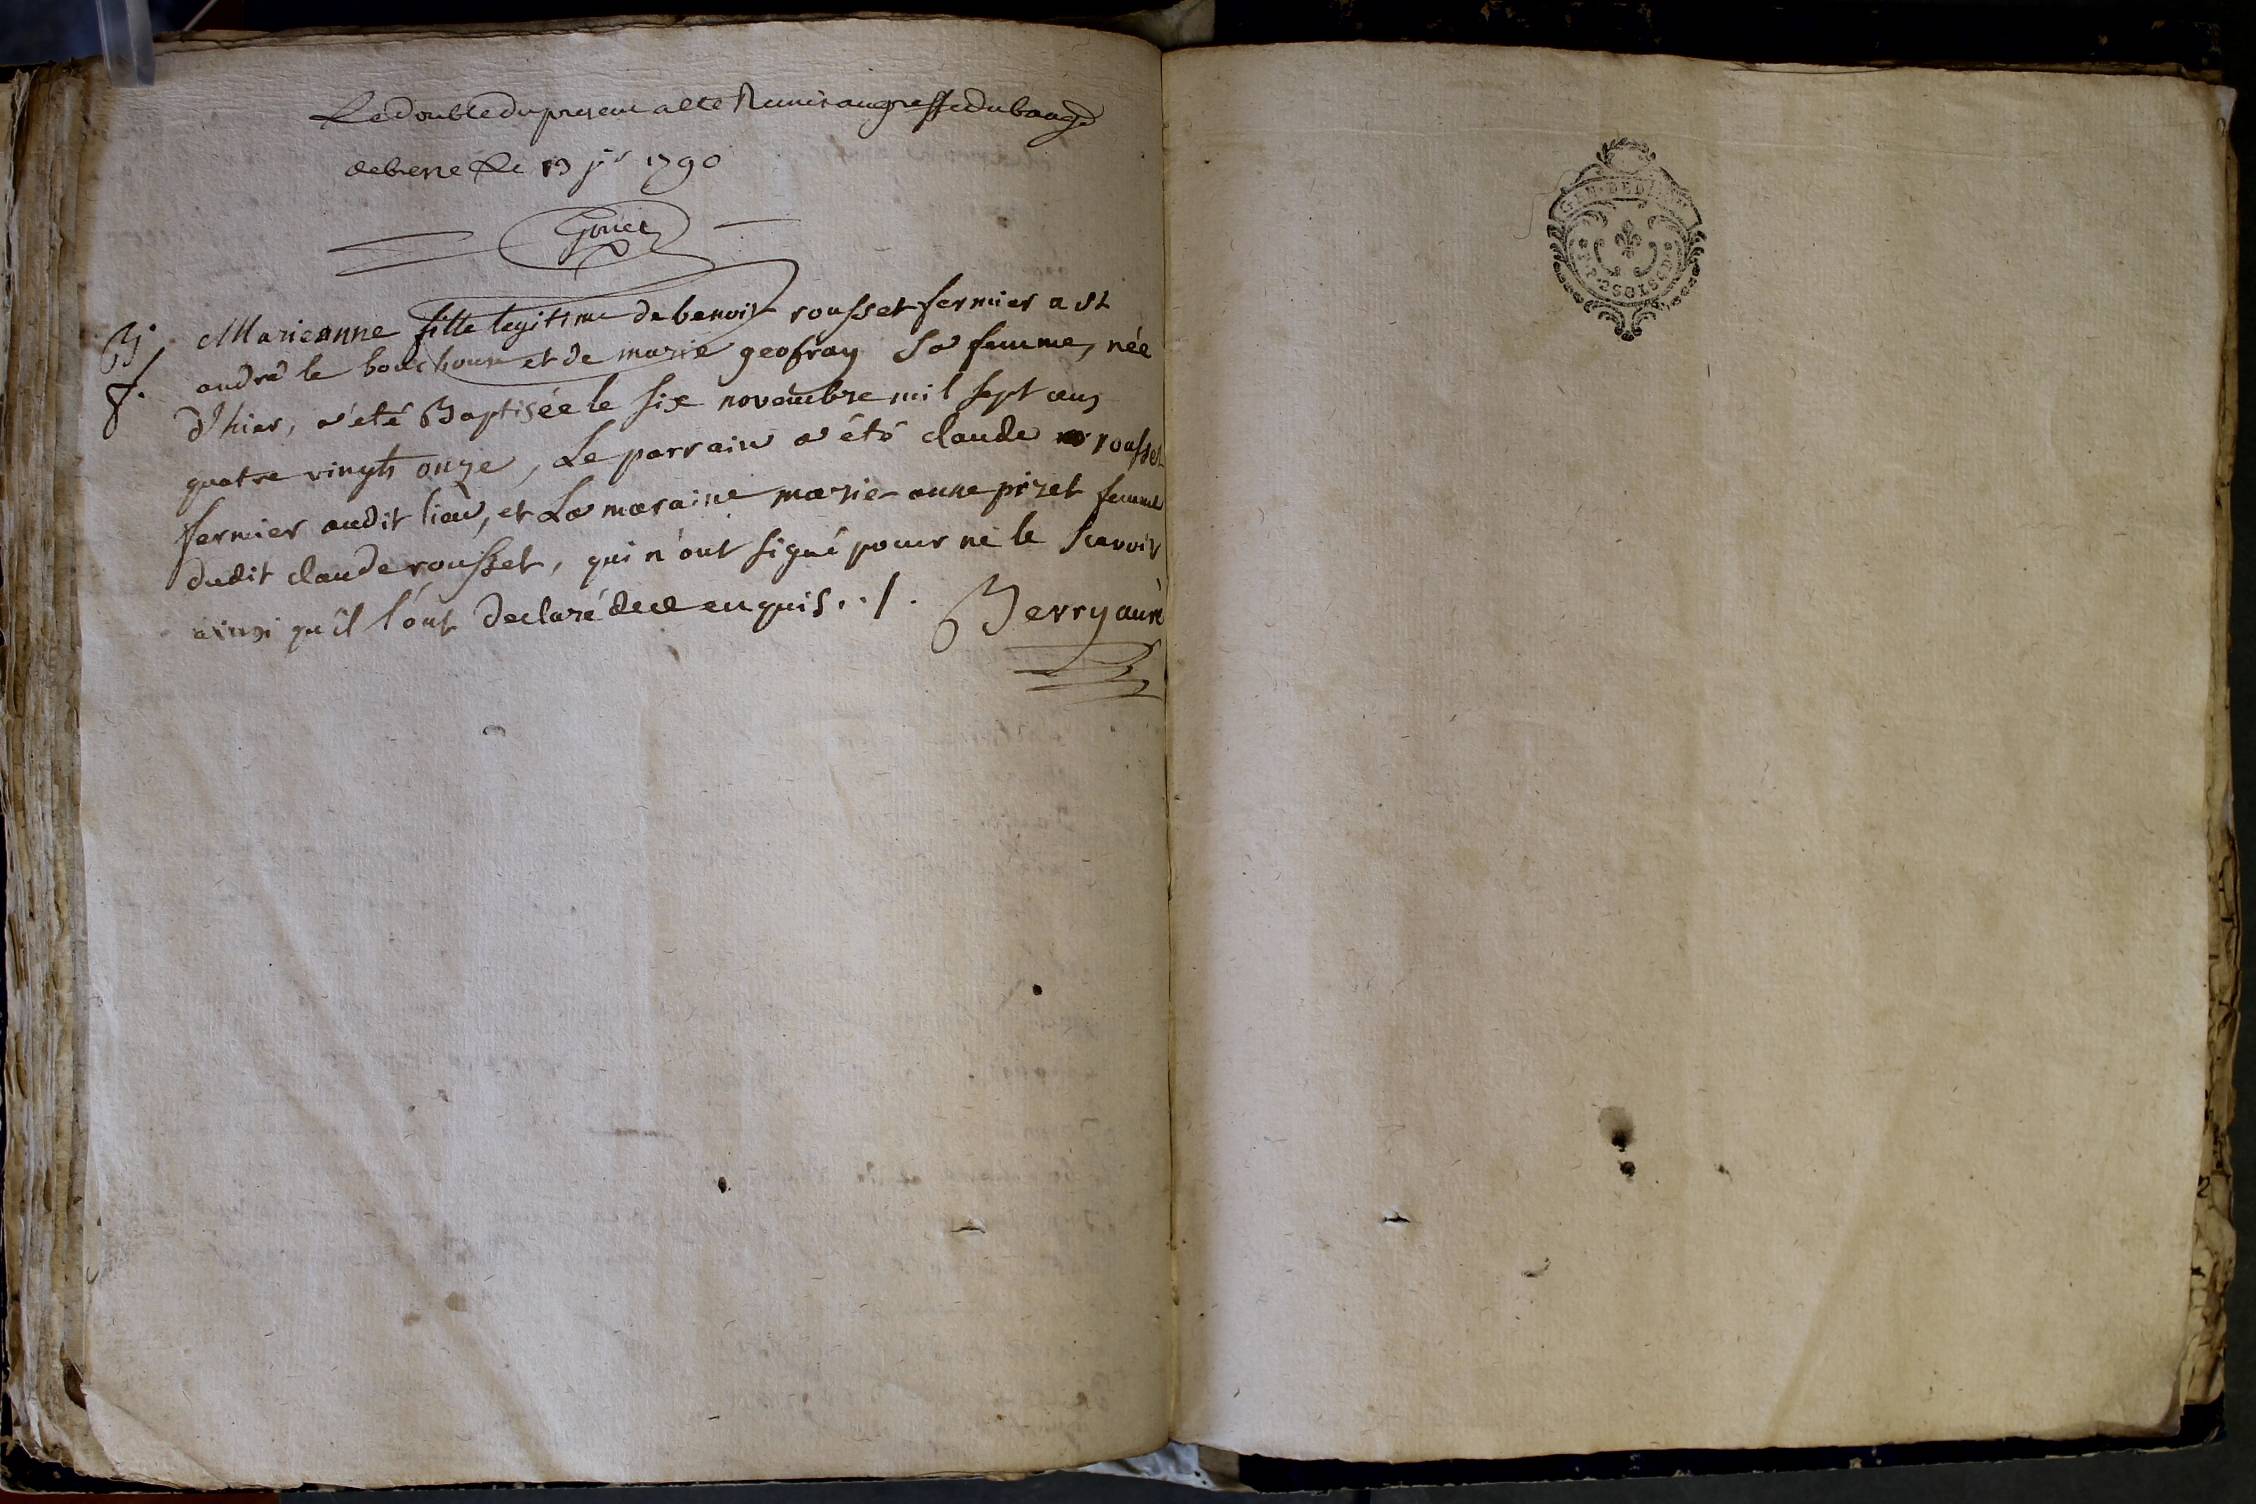 Le double du present acte Remis au greffe du baage
de bresse Le 13 jr 1790
Goiiet
B. Marieanne fille legitime de benoit rousset fermier a st
f. andré le bouchoux et de marie geofray Sa femme, née
d'hier, a été Baptisée le six novembre mil sept cens
quatre vingts onze, Le parrain a été claude rousset
fermier audit lieu, et La maraine marie anne pizet femme
dudit claude rousset, qui n'ont signé pour ne le scavoir
ainsi qu'il l'ont declaré de ce enquis ../.
Berry curé
GEN. DE DI
2 SOLS